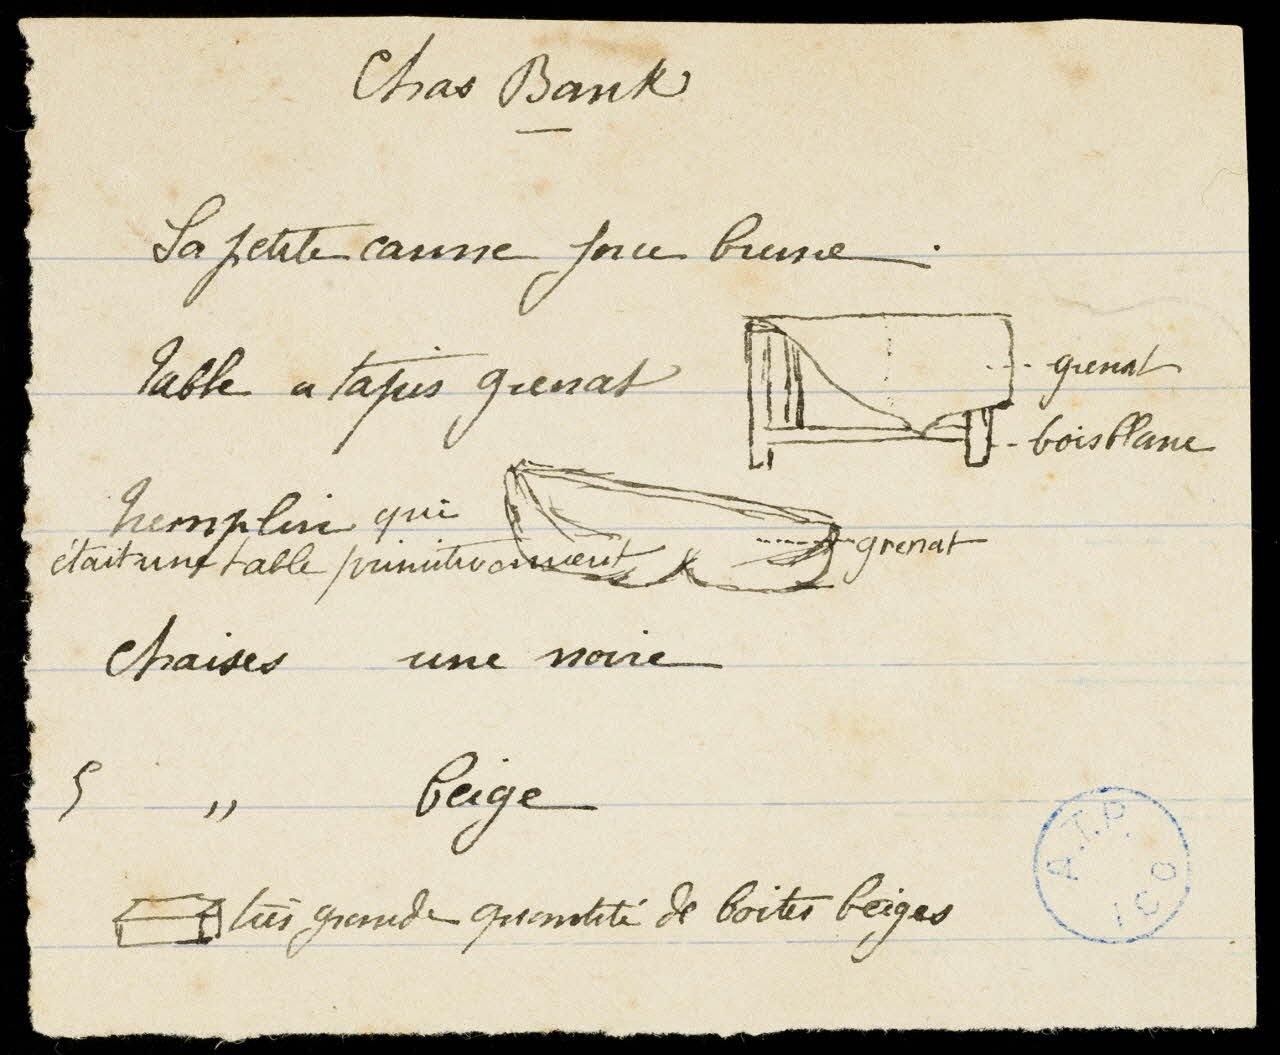 Chas Bank
Sa petite canne jonc brune.
Table a tapis grenat
grenat
bois blanc
tremplin qui
était une table primitivement
grenat
Chaises une noire
5 " beige
très grande quantité de boites beiges
A.T.P.
ICO